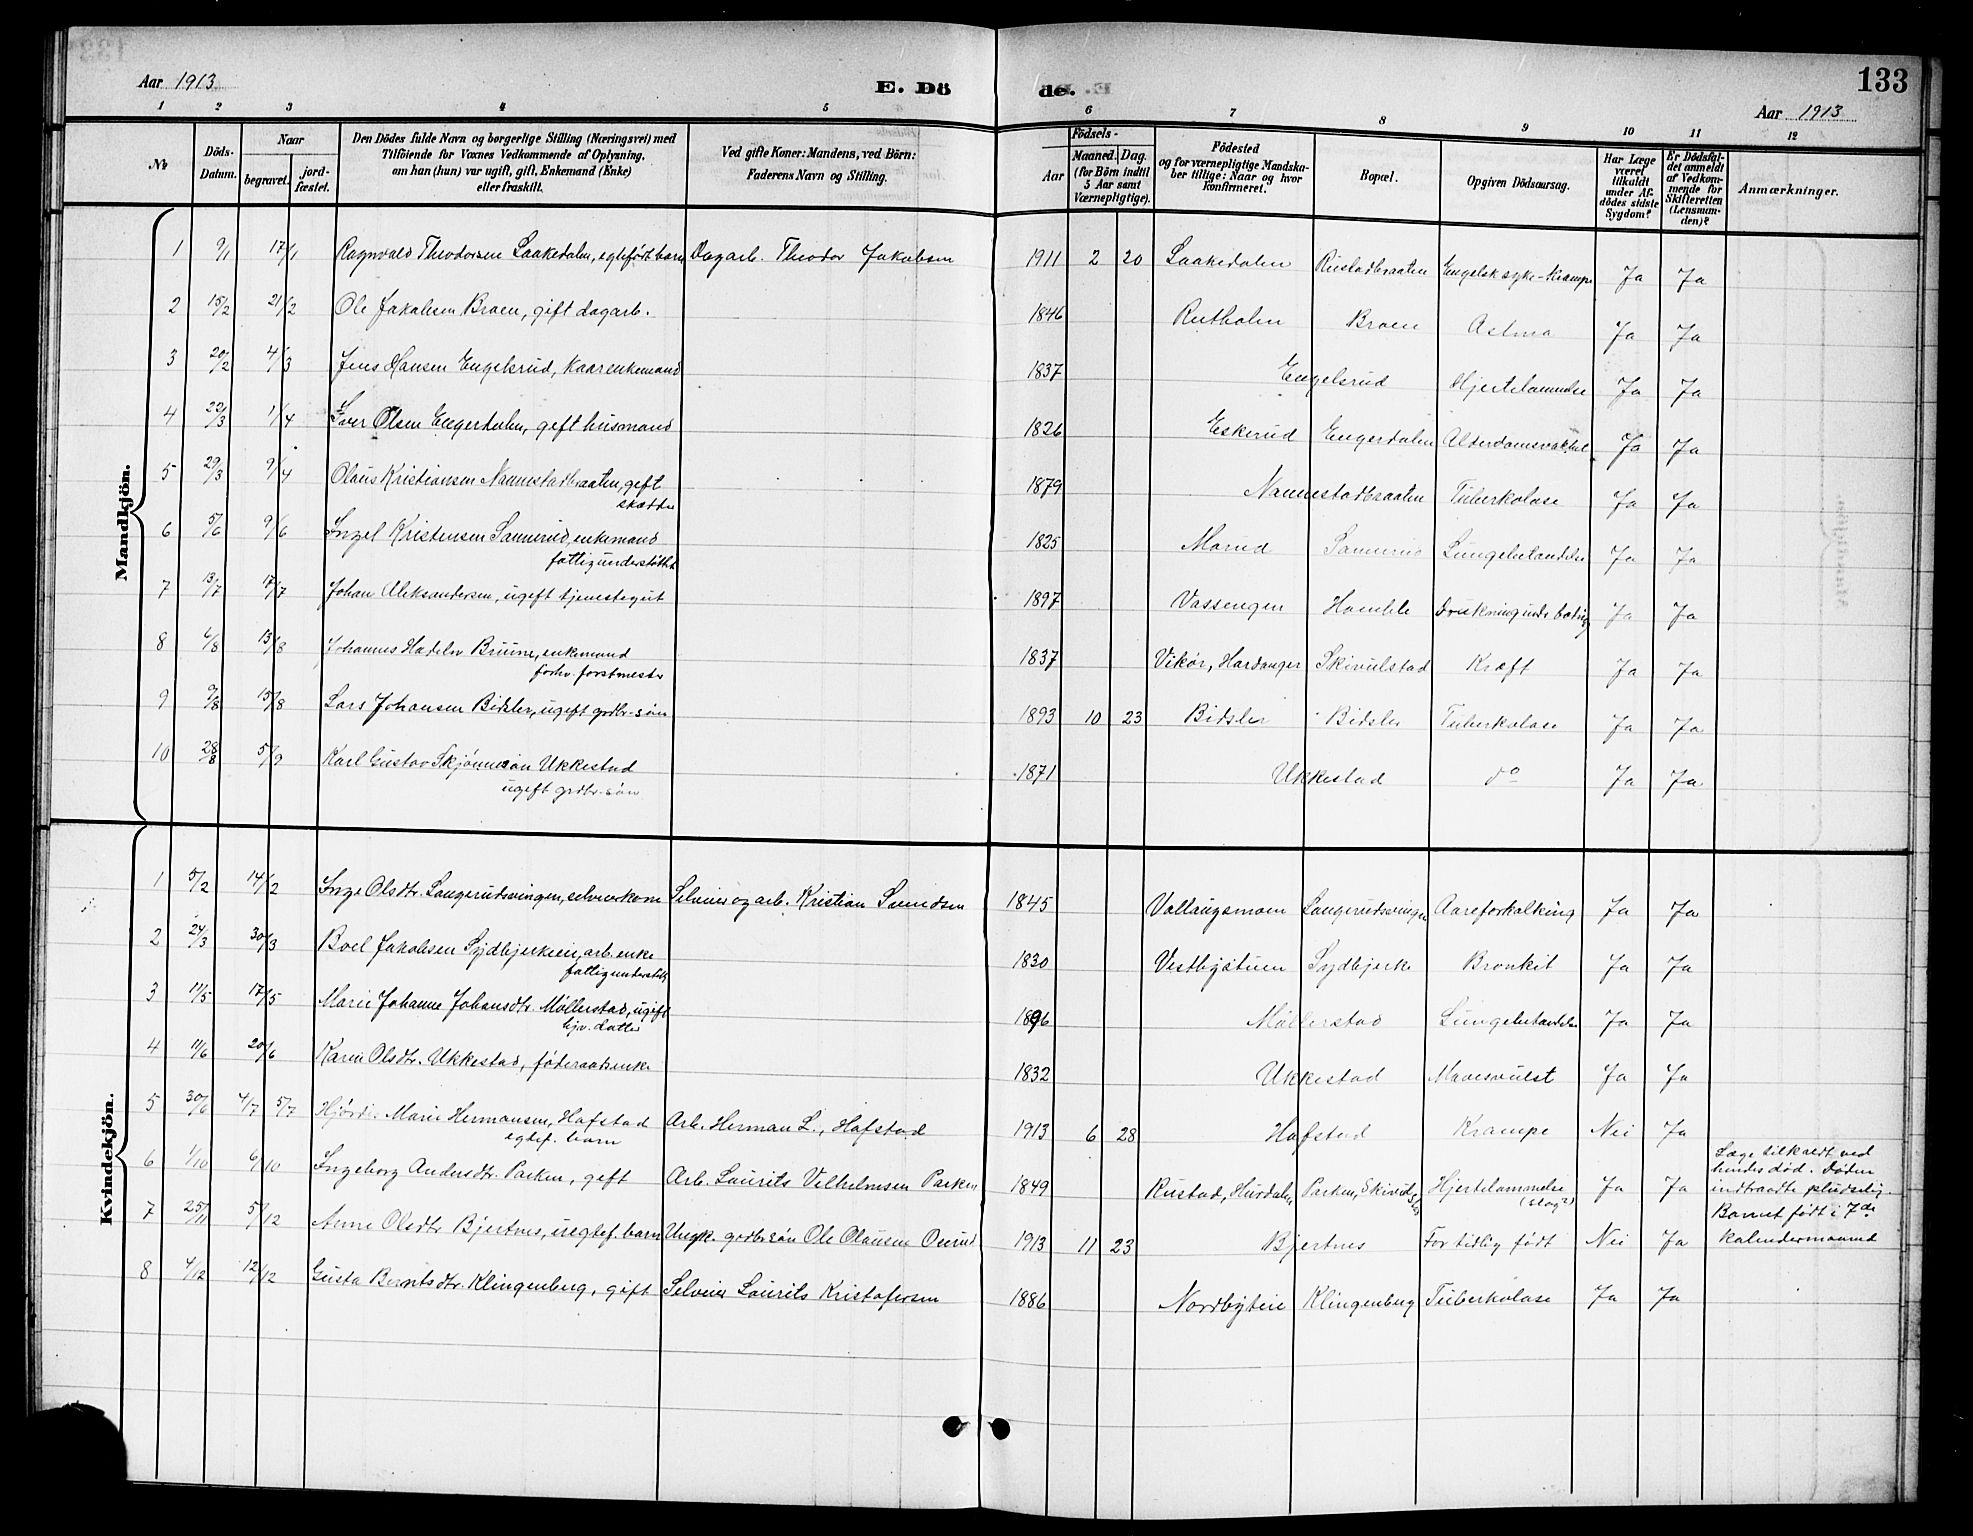 133
Aar 1913 E. Dö de. Aar 1913
1 2 3 4 5 6 7 8 9 10 11 12
№ Döds-Datum. Naar begravet. jord-fæstet. Den Dödes fulde Navn og borgerlige Stilling (Næringsvei) med Tilföiende for Voxnes Vedkommende af Oplysning, om han (hun) var ugift, gift, Enkemand (Enke) eller fraskilt. Ved gifte Koner: Mandens, ved Börn: Faderens Navn og Stilling. Födsels- Aar Maaned. Dag. (for Börn indtil 5 Aar samt Værnepligtige). Födested og for værnepligtige Mandskaber tillige: Naar og hvor konfirmeret. Bopæl. Opgiven Dödsaarsag. Har Læge været tilkaldt under Afdödes sidste Sygdom? Er Dödsfaldet anmeldt af Vedkommende for Skifteretten (Lensmanden)? Anmærkninger.
Mandkjön.
1 9/1 17/1 Ragnvald Theodorsen Laakedalen, egtefödt barn Dagarb. Theodor Jakobsen 1911 2 20 Laakedalen Rustadbraaten Engelsk syke - Krampe Ja Ja
2 15/2 21/2 Ole Jakobsen Braen, gift dagarb. 1846 Rutholen Braen Astma Ja Ja
3 20/2 4/3 Jens Hansen Engelsrud, kaarenkemand 1837 Engelsrud Hjertelammelse Ja Ja
4 22/3 1/4 Iver Olsen Engerdalen, gift husmand 1826 Eskerud Engerdalen Alderdomsvakhet Ja Ja
5 29/3 9/4 Olaus Kristiansen Nannestadbraaten, gift
skrædder 1879 Nannestadbraaten Tuberkolose Ja Ja
6 5/6 9/6 Ingel Kristensen Sannerud, enkemand
fattigunderstöttet 1825 Marud Sannerud Lungebetændelse Ja Ja
7 13/7 17/7 Johan Aleksandersen, ugift tjenestegut 1897 Vassengen Homble Drukning under badning Ja Ja
8 6/8 13/8 Johannes Hadeln Bruun, enkemand
forhv. forstmester 1837 Vikør, Hardanger Skivulstad Kræft Ja Ja
9 9/8 15/8 Lars Johansen Bidsler, ugift grdbr-søn 1893 10 23 Bidsler Bidsler Tuberkolose Ja Ja
10 28/8 5/9 Karl Gustav Skjønneson Ukkestad
ugift grdbr-søn 1871 Ukkestad do Ja Ja
Kvindekjön.
1 5/2 14/2 Inge Olsdtr. Langerudsvingen, selveierkone Selveier og arb. Kristian Svendsen 1845 Vollaugsmoen Langerudsvingen Aareforkalkning Ja Ja
2 24/3 30/3 Boel Jakobsen Sydbjerkeie, arb. enke
fattigunderstött. 1830 Vestbystuen Sydbjerke Bronkit Ja Ja
3 11/5 17/5 Marie Johanne Johansdtr. Møllerstad, ugift
hjv. datter 1896 Møllerstad Lungebetændelse Ja Ja
4 11/6 20/6 Karen Olsdtr. Ukkestad, føderaadsenke 1832 Ukkestad Mavesvulst Ja Ja
5 30/6 4/7 5/7 Hjørd. Marie Hermansen, Hafstad
egtef. barn Arb. Herman L., Hafstad 1913 6 28 Hafstad Krampe Nei Ja
6 1/10 6/10 Ingeborg Andersdtr. Parken, gift Arb. Laurits Vilhelmsen Parken 1849 Rustad, Hurdalen Parken, Skivulstad Hjertelammelse
(slag?) Ja Ja Læge tilkaldt ved
hendes død. Døden
indtraadte pludselig.
7 25/11 5/12 Anne Olsdtr Bjertnes, uegtef. barn Ungk. grdbrsøn Ole Olausen Onsrud 1913 11 23 Bjertnes For tidlig født Nei Ja Barnet født i 7de
kalendermaaned
8 4/12 12/12 Gusta Berntsdtr. Klingenberg, gift Selveier Laurits Kristofersen 1886 Nordbyeie Klingenberg Tuberkolose Ja Ja